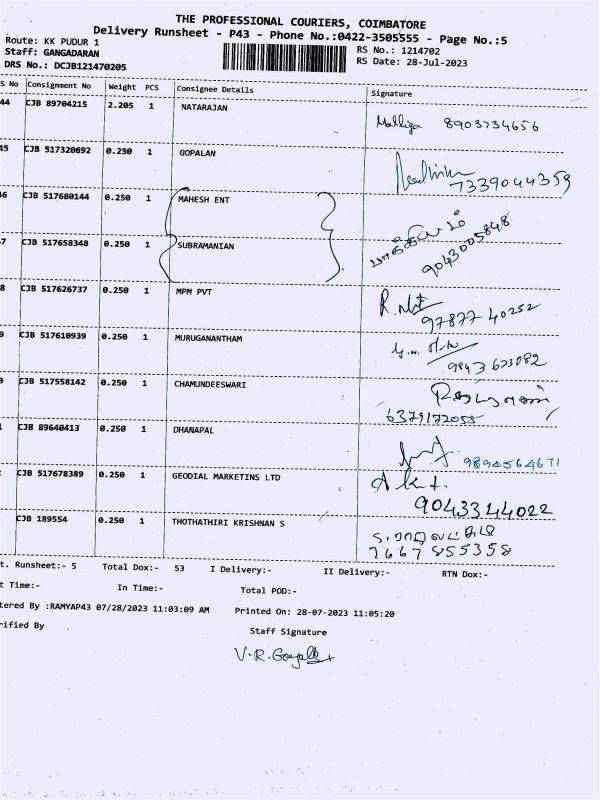 THE PROFESSIONAL COURIERS, COIMBATORE
Delivery Runsheet - P43 - Phone No.:0422-3505555 - Page No.:5
Route: KK PUDUR 1
RS No.: 1214702
Staff: GANGADARAN
RS Date: 28-Jul-2023
DRS No.: DCJB121470205
S No Consignment No Weight PCS Consignee Details Signature
44 CJB 89704215 2.205 1 NATARAJAN
Malliga 8903734656
45 CJB 517320692 0.250 1 GOPALAN
7339044359
46 CJB 517680144 0.250 1 MAHESH ENT
பாக்கியம்
9043005848
7 CJB 517658348 0.250 1 SUBRAMANIAN
8 CJB 517626737 0.250 1 MPM PVT
97877 40252
9 CJB 517610939 0.250 1 MURUGANANTHAM
9843 623082
0 CJB 517558142 0.250 1 CHAMUNDEESWARI
6379172055
CJB 89640413 0.250 1 DHANAPAL
9894564671
2 CJB 517678389 0.250 1 GEODIAL MARKETINS LTD
9043344022
CJB 189554 0.250 1 THOTHATHIRI KRISHNAN S
7667 855358
t. Runsheet:- 5 Total Dox:- 53 I Delivery:- II Delivery:- RTN Dox:-
t Time:- In Time:- Total POD:-
tered By :RAMYAP43 07/28/2023 11:03:09 AM Printed On: 28-07-2023 11:05:20
rified By
Staff Signature